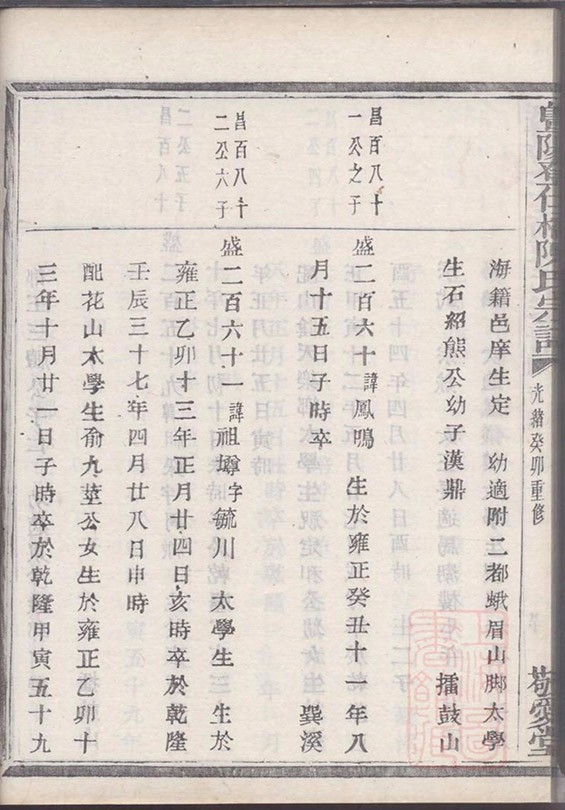 暨陽
陳氏宗譜
光緒癸卯重修
敬愛堂
海籍邑庠生定 幼適附二都蛾眉山脚太學
生石紹熊公幼子漢鼎 擂鼓山
昌百八十
一公之子
盛二百六十諱鳳鳴 生於雍正癸丑十一年八
月十五日子時卒 巽溪
昌百八十
二公六子
盛二百六十一諱祖壿字毓川 太學生 生於
雍正乙卯十三年正月廿四日亥時卒於乾隆
壬辰三十七年四月廿八日申時
配花山太學生俞九莖公女生於雍正乙卯十
三年十月廿一日子時卒於乾隆甲寅五十九